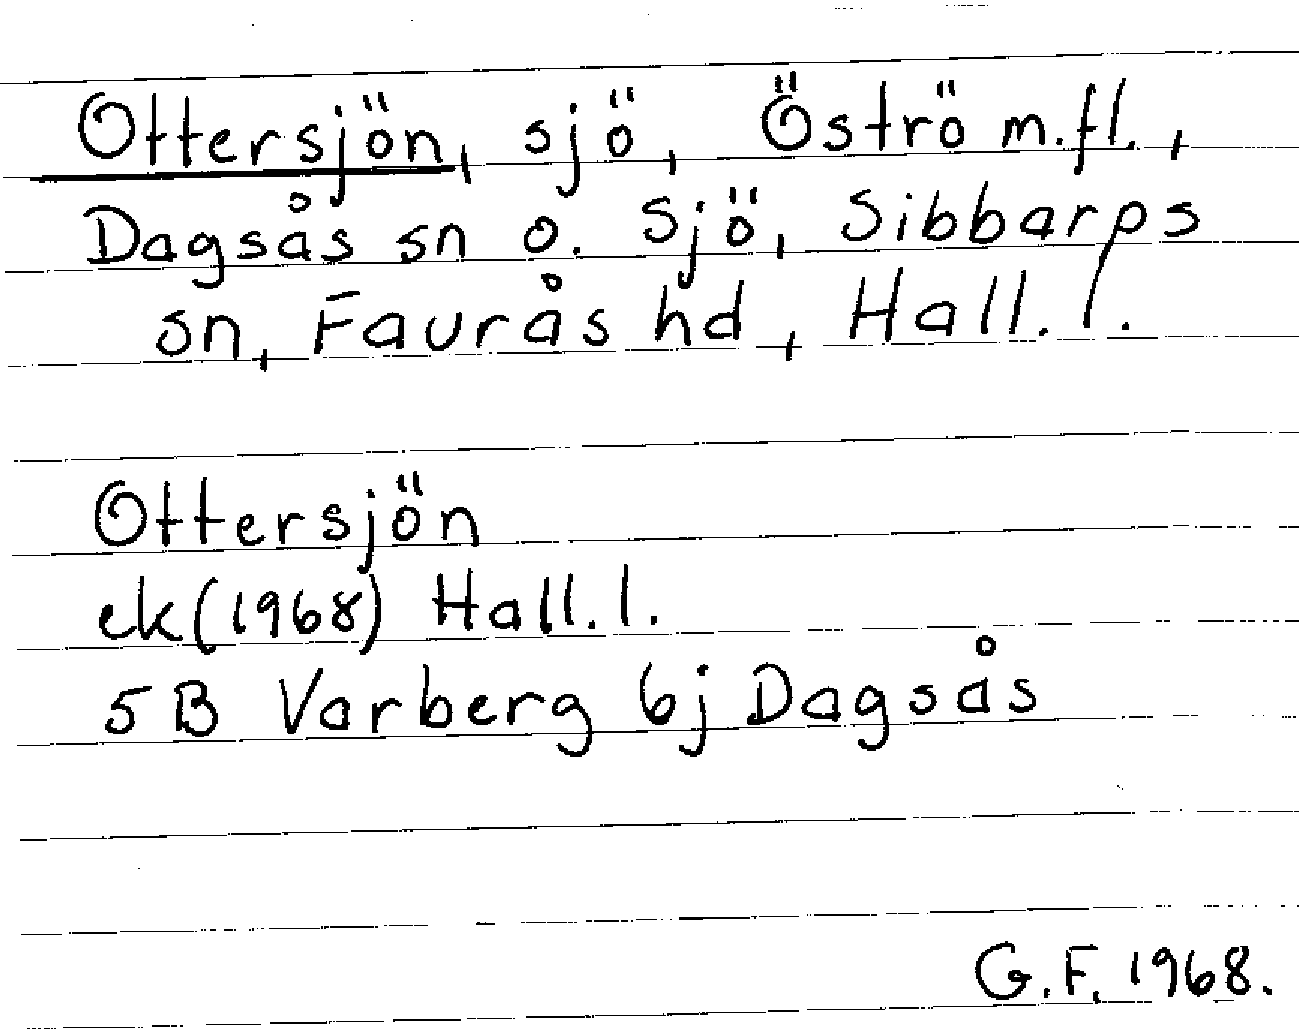 Ottersjön, sjö, Öströ m.fl.,
Dagsås sn o. Sjö, Sibbarps
sn, Faurås hd, Hall. l.
Ottersjön
ek (1968) Hall. l.
5B Varberg 6j Dagsås
G.F. 1968.